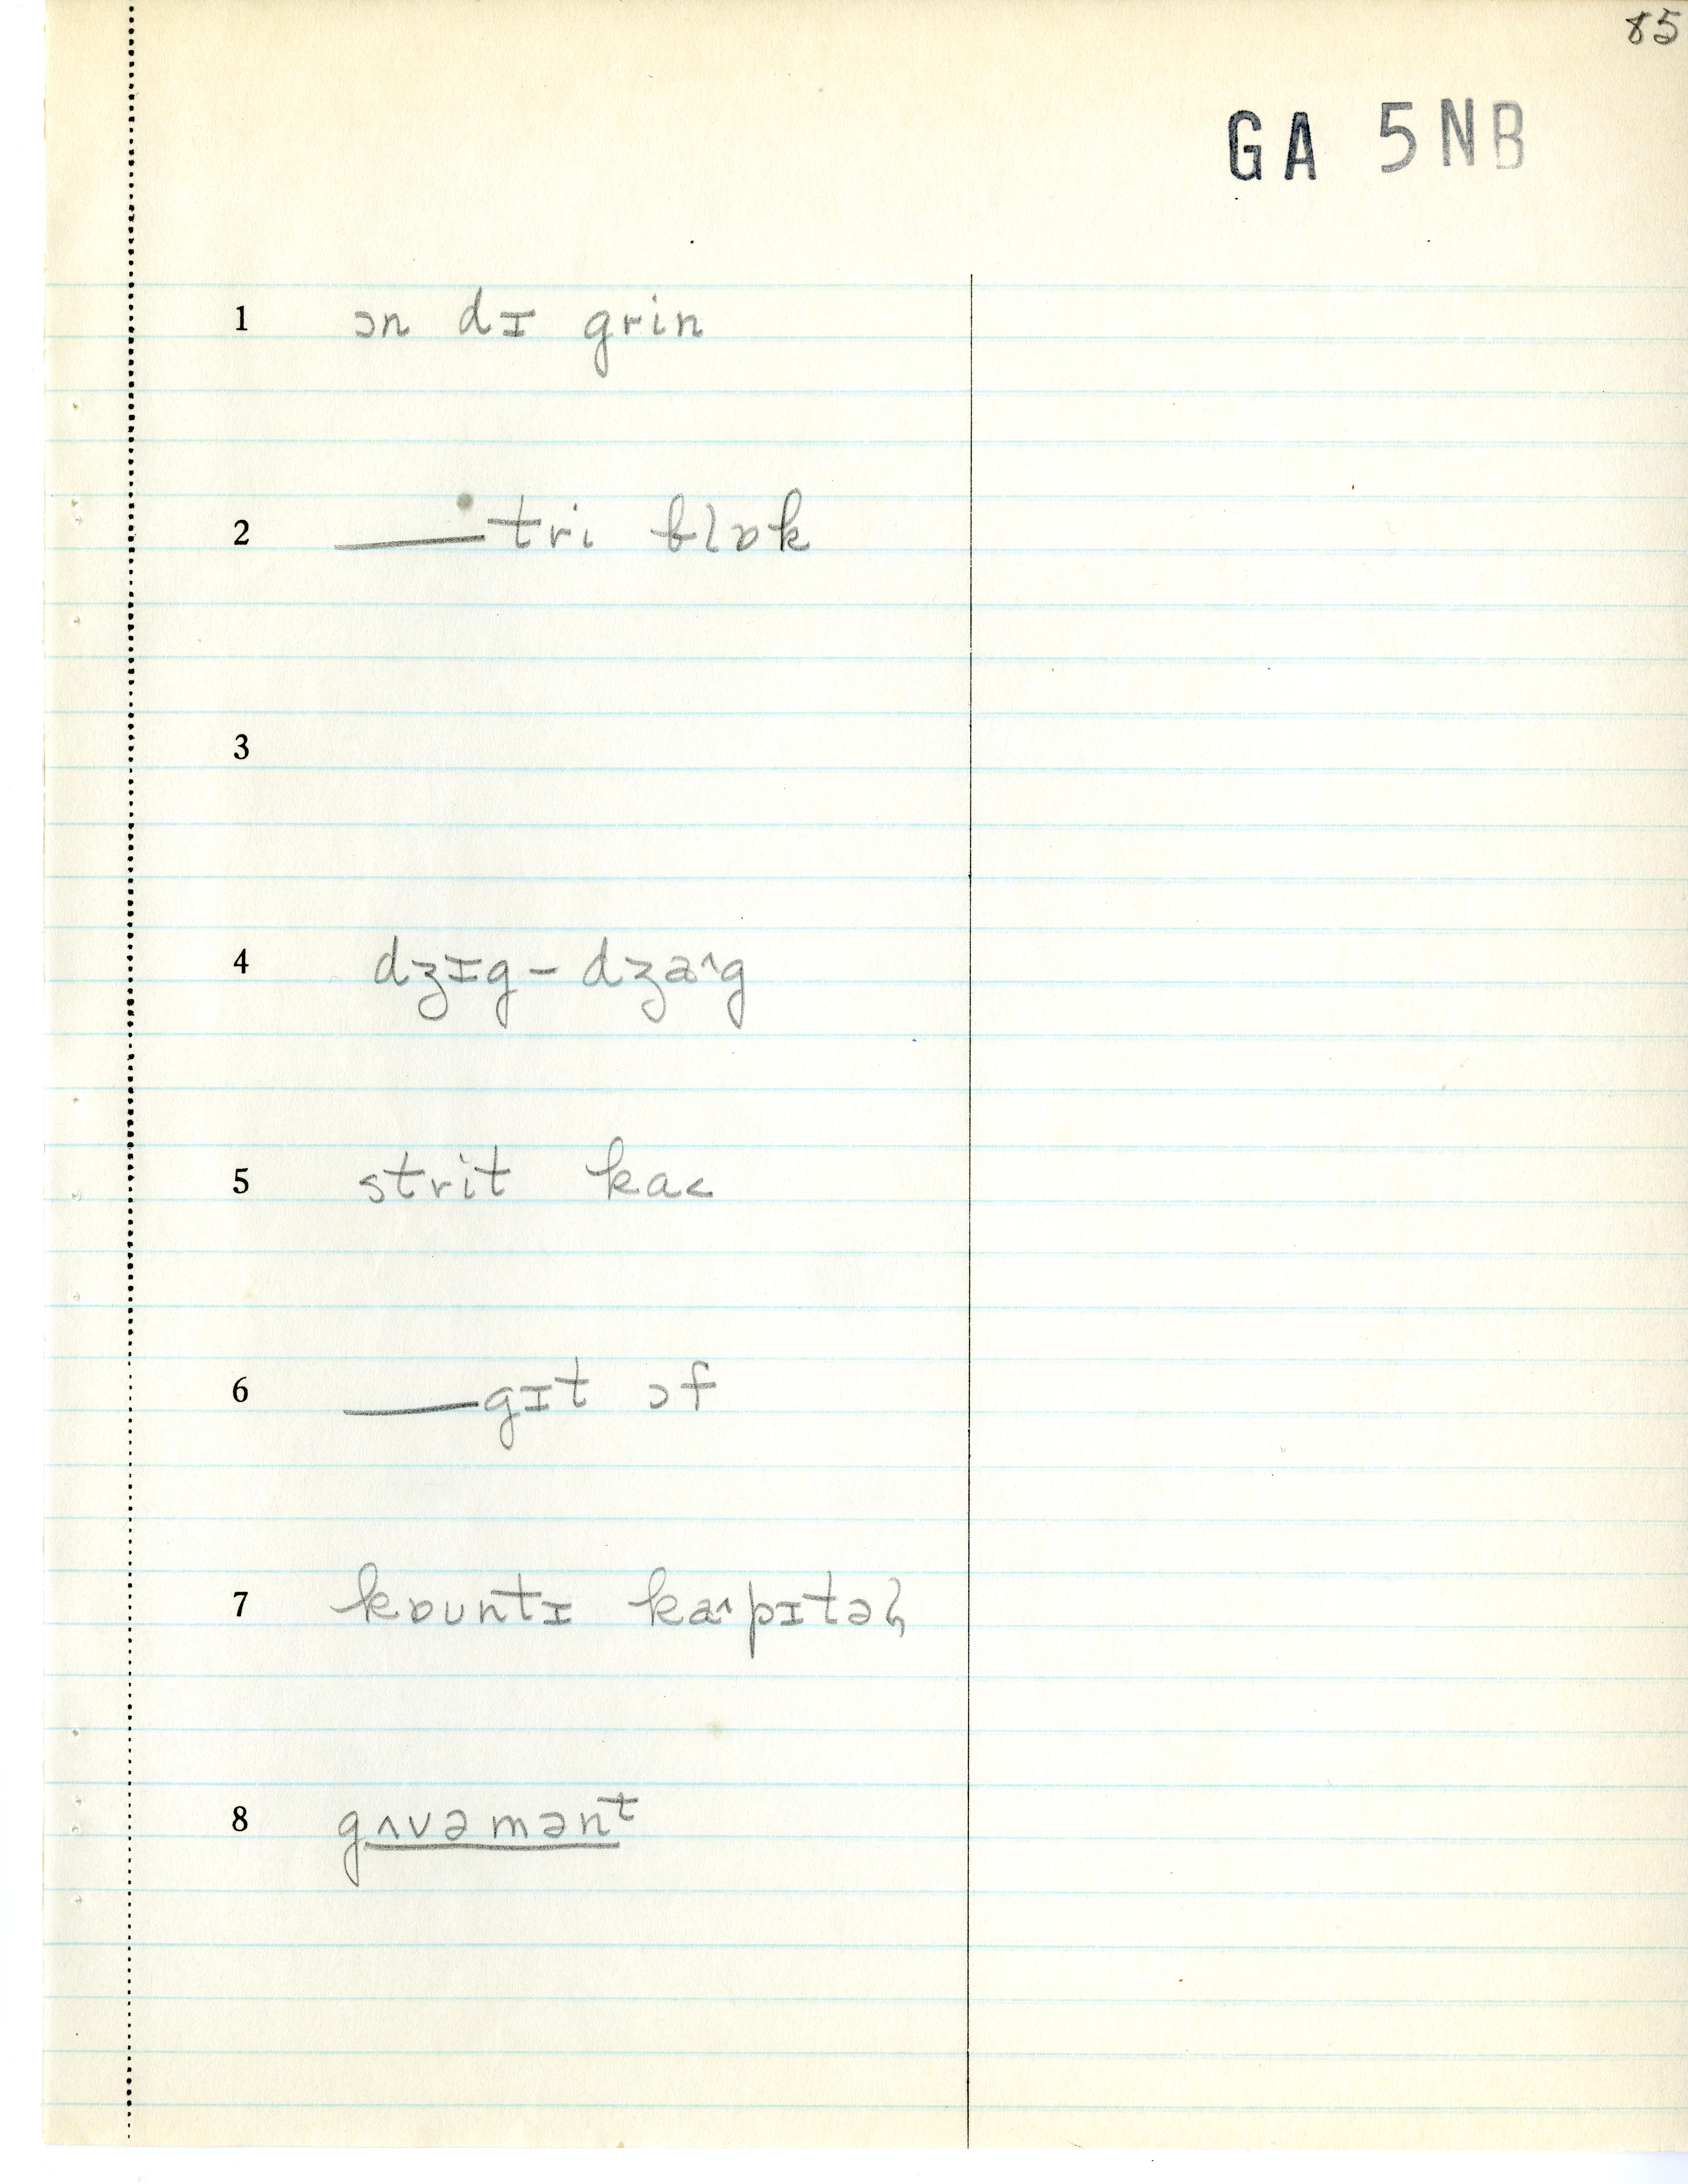 85
GA 5NB
1 ɔn dɪ grin
2 ——tri blɒk
3
4 dʒɪg-dʒa^g
5 strit ka<
6 ——gɪt ɔf
7 kɒuntɪ ka^pɪtəl̩
8 gʌvəmənᵗ